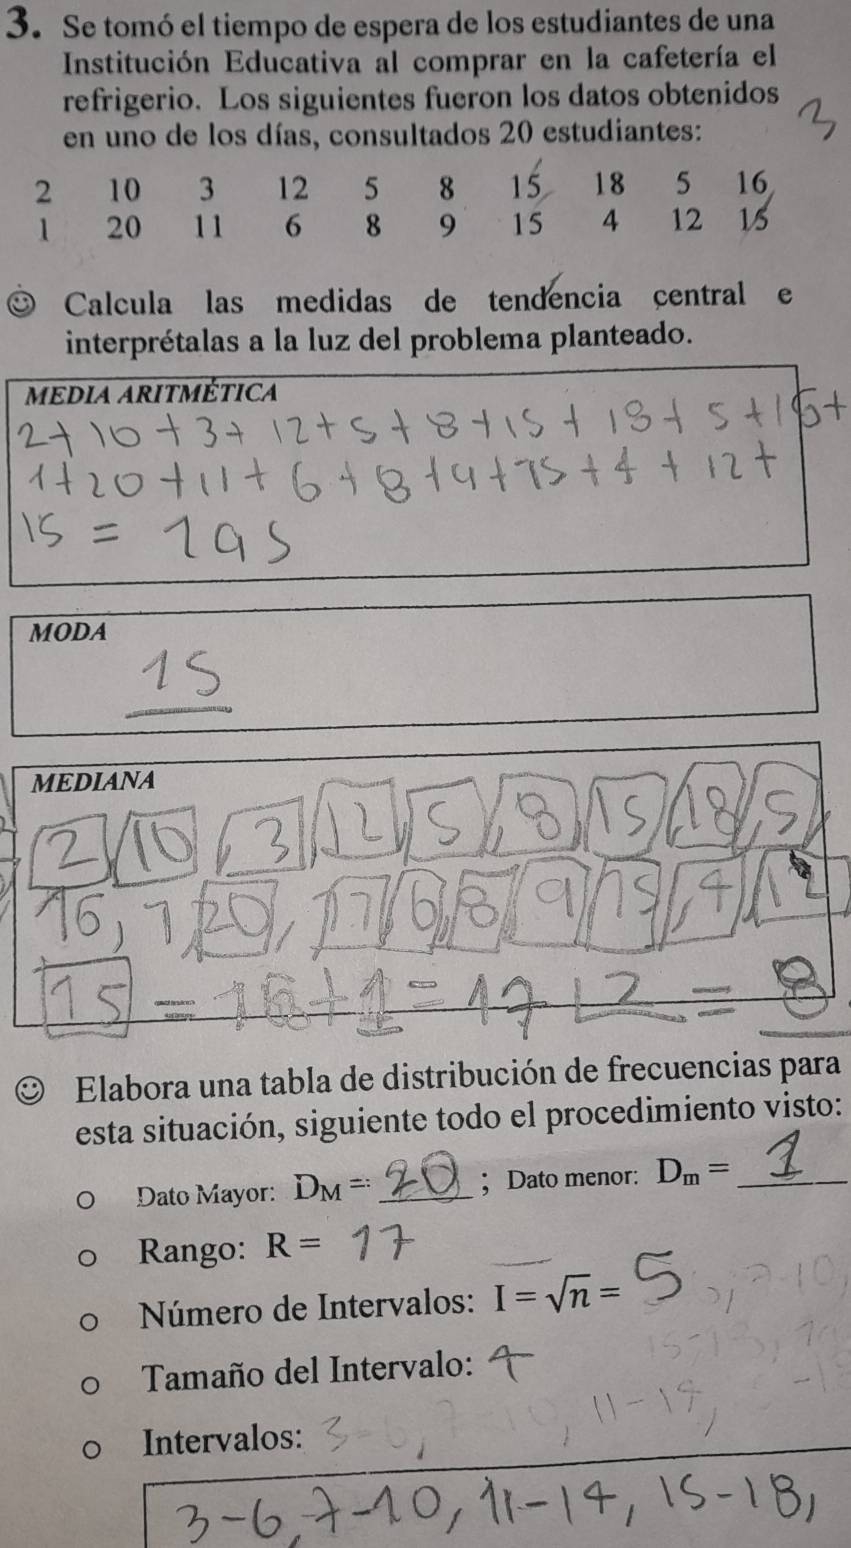 3. Se tomó el tiempo de espera de los estudiantes de una
Institución Educativa al comprar en la cafetería el
refrigerio. Los siguientes fueron los datos obtenidos
en uno de los días, consultados 20 estudiantes:
3
2 10 3 12 5 8 15 18 5 16
1 20 11 6 8 9 15 4 12 15
Calcula las medidas de tendencia central e
interprétalas a la luz del problema planteado.
MEDIA ARITMÉTICA
2+10+3+12+5+8+15+18+5+16+
1+20+11+6+8+9+15+4+12+
15 = 195
MODA
15
MEDIANA
2, 10, 3, 12, 5, 8, 15, 18, 5,
16, 1, 20, 11, 6, 8, 9, 15, 4, 12
15 = 16+1 = 17 2 = 8
Elabora una tabla de distribución de frecuencias para
esta situación, siguiente todo el procedimiento visto:
Dato Mayor: DM = 20 ; Dato menor: Dm = 1
Rango: R = 17
Número de Intervalos: I = √n = 5
Tamaño del Intervalo: 4
Intervalos: 3-6, 7-10, 11-14,
3-6, 7-10, 11-14, 15-18,